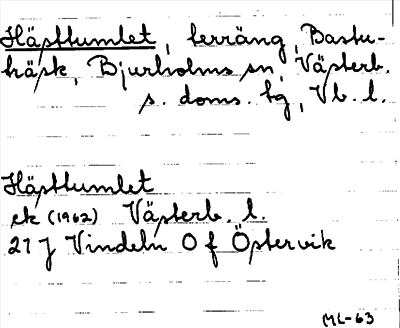 Hästtumlet, terräng, Bastu-
träsk, Bjurholms sn, Västerb.
s. doms. hg, Vb. l.
Hästtumlet
ek (1962) Västerb. l.
21 J Vindeln 0 f Östervik
ML-63